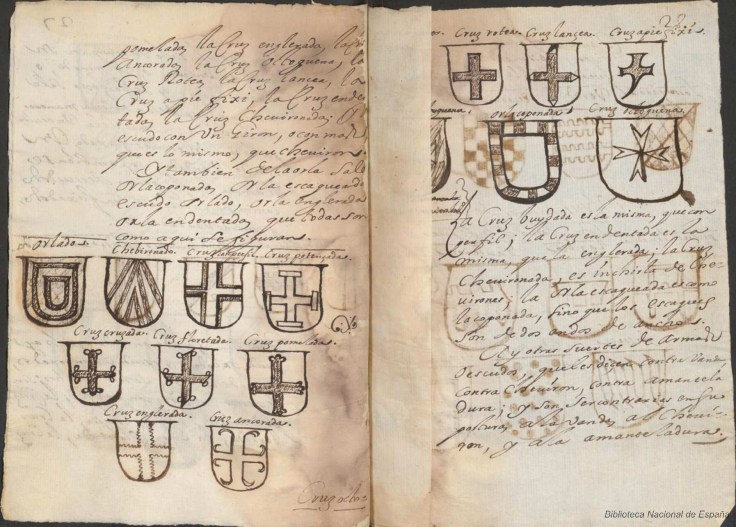 pomelada, la Cruz englerada, la
Ancorada, la Cruz Octoguena, la
Cruz Rotea, la Cruz lancea, la
Cruz apie fixi, la Cruz enden-
tada, la Cruz Chevironada; el
escudo con un Giron, o con mas
que es lo mismo, que chevirons.
Y tambien de la orla
orla coponada, orla escaqueada
escudo orlado, orla englerada
orla endentada, que todas son
como aqui se figuran.
Orlado.
Chebironado.
Cruz
Cruz potenzada.
Cruz cruzada.
Cruz floretada.
Cruz pomelada.
Cruz englerada.
Cruz ancorada.
Cruz octo=
28
Cruz rotea.
Cruz lancea.
Cruz apie fixi.
orla coponada
Cruz octoguena.
La Cruz buydada es la misma, que con
perfil; la Cruz endentada es la
misma, que la englerada; la Cruz
Chevironada, es inchista de Che-
virones; la orla escaqueada es como
la coponada, sino que los escaques
son de dos en dos de ancho.
Ay otras suertes de Armas
o escudos, que les dicen contra vanda
contra Cheviron, contra amantela
dura; y son ser contrarias en su
postura, a la vanda, al Chevi-
ron, y a la amanteladura.
Biblioteca Nacional de España